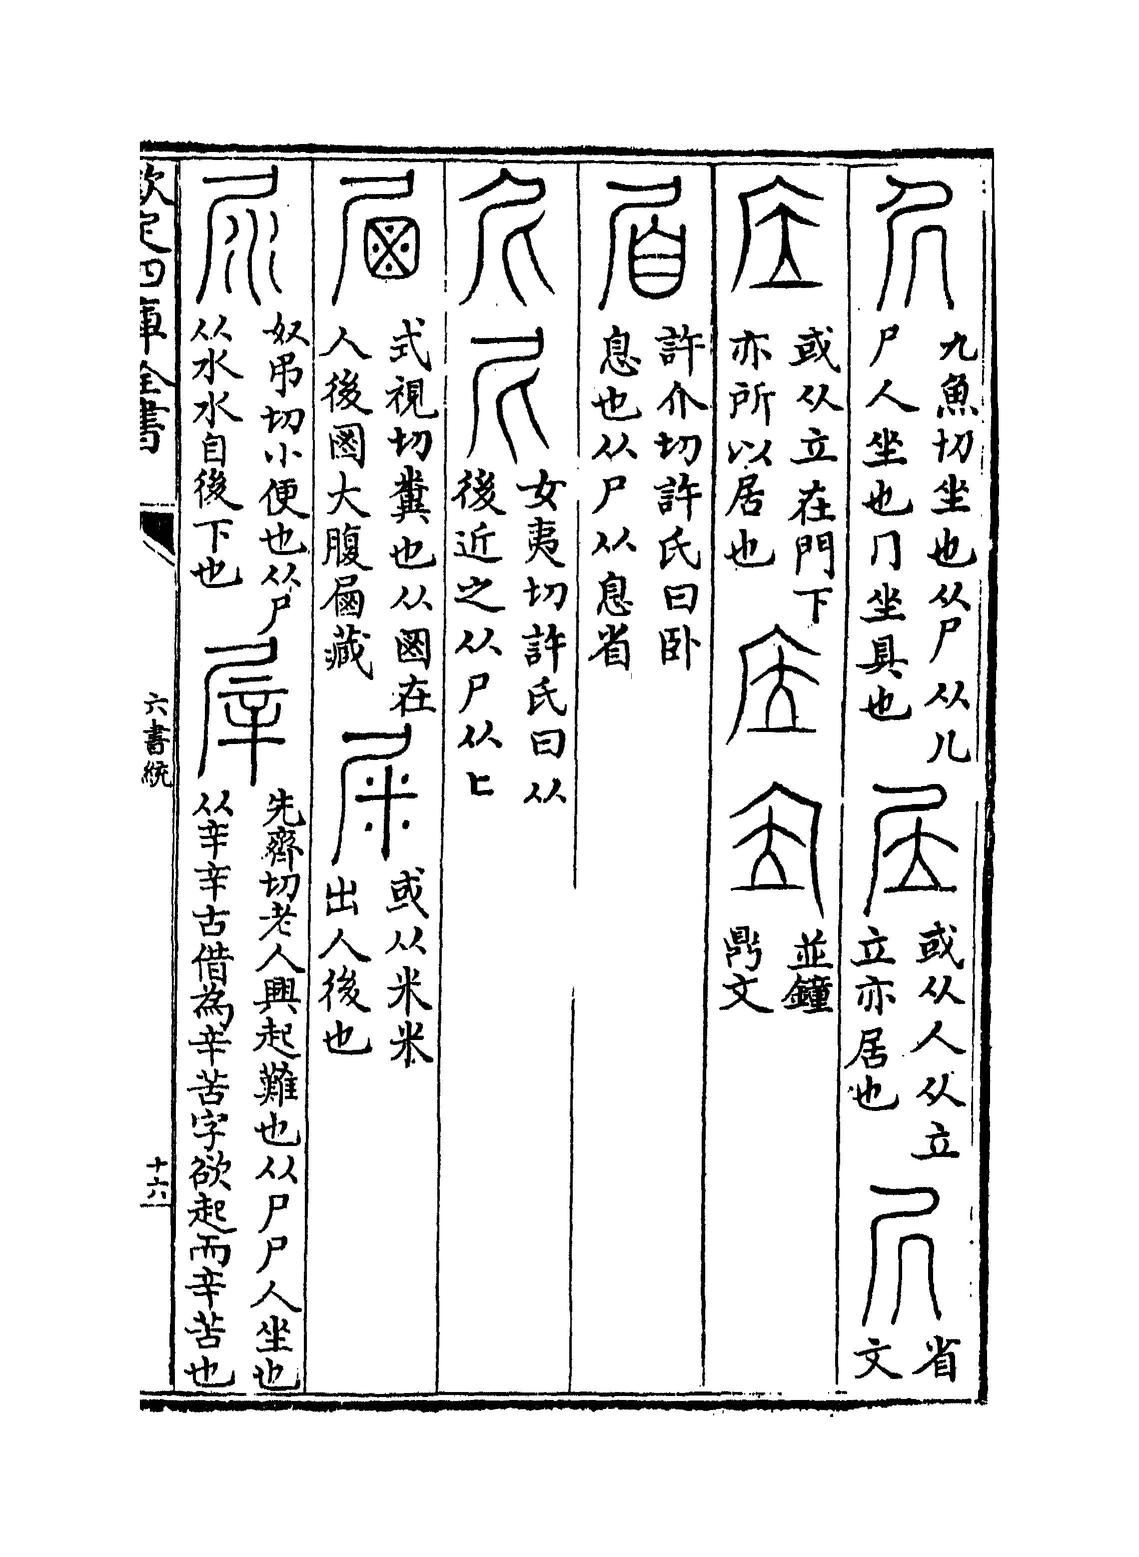 凥
九魚切坐也从尸从儿
尸人坐也冂坐具也
或从人从立
立亦居也
省
文
或从立在門下
亦所以居也
並鐘
鼎文
許介切許氏曰卧
息也从尸从息省
尼
女夷切許氏曰从
後近之从尸从匕
式視切糞也从圂在
人後圂大腹屇藏
屎
或从米米
出人後也
尿
奴弔切小便也从尸
从水水自後下也
先齊切老人興起難也从尸尸人坐也
从辛辛古借為辛苦字欲起而辛苦也
欽定四庫全書
六書統
十六